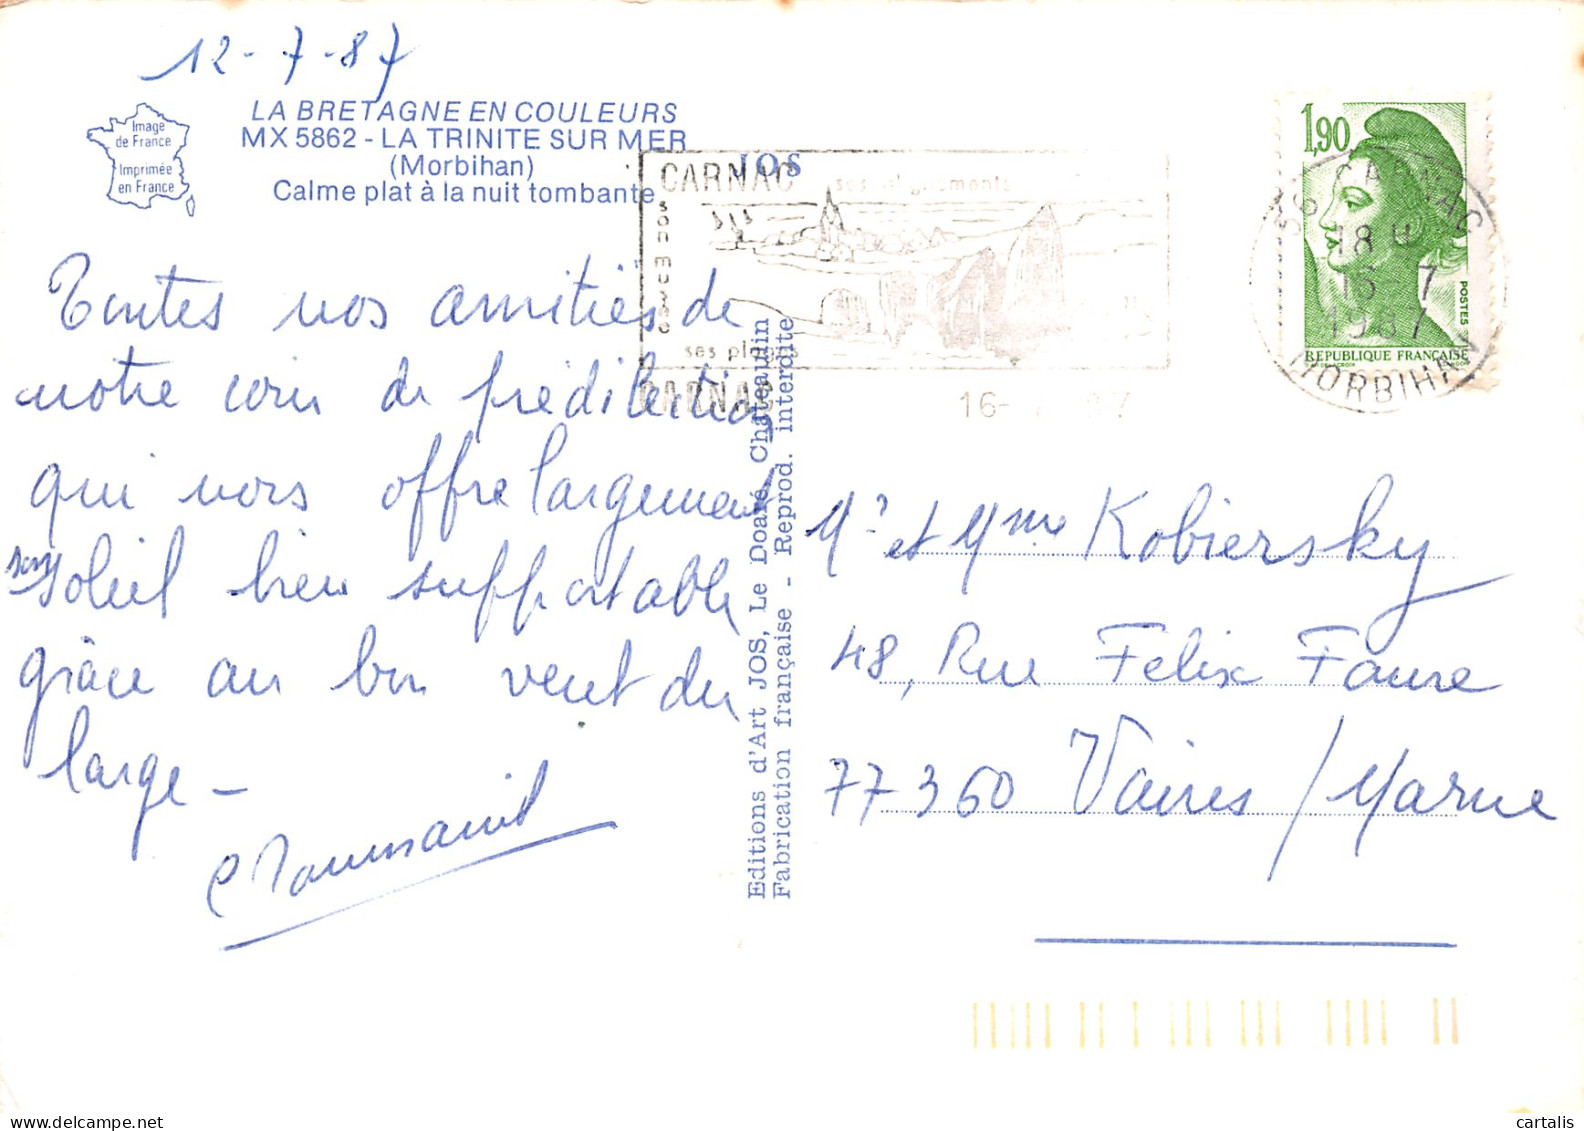 12-7-87
Image
de France
Imprimée
en France
LA BRETAGNE EN COULEURS
MX 5862 - LA TRINITE SUR MER
(Morbihan)
Calme plat à la nuit tombante
JOS
Toutes nos amitiés de
notre coin de prédilection
qui nous offre largement
son
soleil bien supportable
grâce au bon vent du
large -
Toussaint
CARNAC
ses alignements
son musée
ses plages
CARNAC
16-7 87
1,90
POSTES
REPUBLIQUE FRANÇAISE
56 CARNAC
18 H
16-7
1987
MORBIHAN
Editions d'Art JOS, Le Doaré, Chateaulin
Fabrication française - Reprod. interdite
Mr et Mme Kobiersky
48, Rue Félix Faure
77360 Vaires / Marne
cartalis